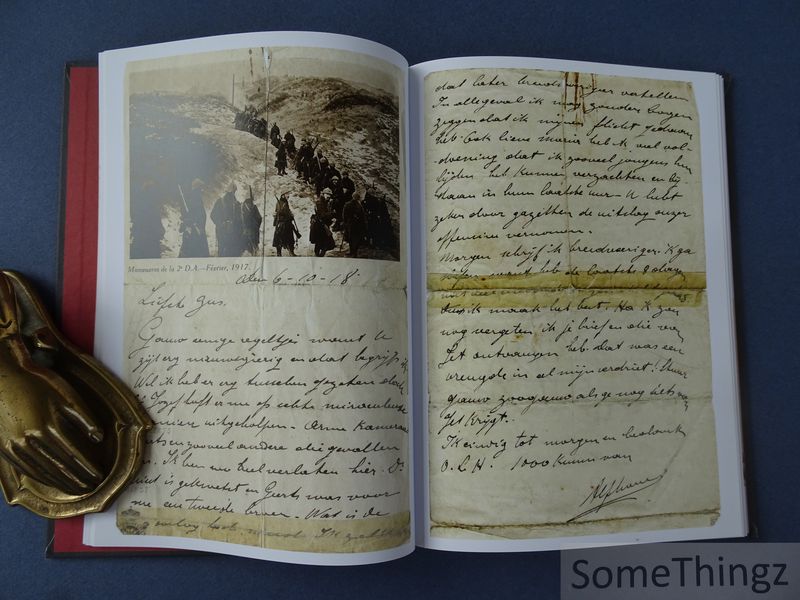 Manœuvres de la 2e D.A.—Février, 1917.
6-10-18
Liefste Zus.
Gauw eenige regeltjes want U
zijt erg nieuwsgierig en dat begrijp ik.
Wel ik heb er erg tusschen gezeten doch
St Jozef heeft er me op echte miraculeuse
manier uitgeholpen. Arme kameraad
en zooveel andere die gevallen
Ik ben nu heel verlaten hier. Dr
is gekwetst en Geerts was voor
me een tweede broer. Wat is de
oorlog toch wreed. Ik zal U
dat later breedvoeriger vertellen
In alle geval ik mag zonder bogen
zeggen dat ik mijne plicht gedaan
heb. Ook lieve Maria heb ik veel vol-
doening dat ik zooveel jongens hun
lijden heb kunnen verzachten en bij-
staan in hun laatste uur. U hebt
zeker door gazetten de uitslag onzer
offensief vernomen.
Morgen schrijf ik breedvoeriger. Ik ga
want heb de laatste dagen
ik maak het best. Ha ik zou
nog vergeten, ik je brieven die van
Jet ontvangen heb. dat was een
vreugde in al mijn verdriet! Stuur
gauw zoo gauw als ge nog iets van
Jet krijgt.
Ik eindig tot morgen en bedank
O.L.H. 1000 kussen van
Alfons
SomeThingz